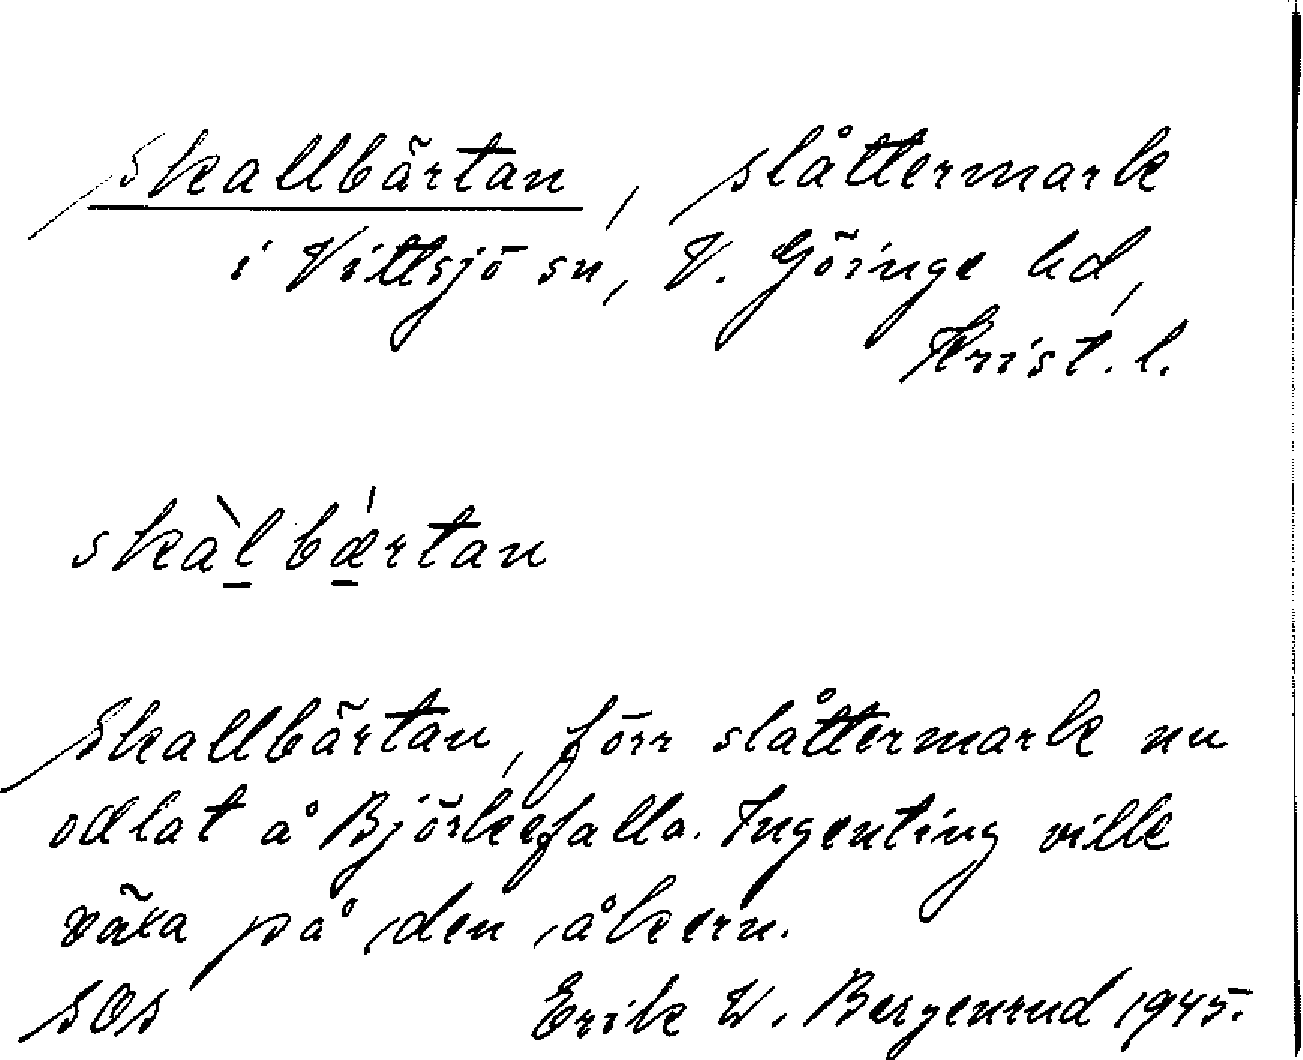 Skallbärtan, slåttermark
i Vittsjö sn, V. Göinge hd,
Krist. l.
skàl bǽrtan
Skallbärtan, förr slåttermark nu
odlat å Björkefalla. Ingenting ville
växa på den åkern.
SOS Erik W. Bergenrud 1945.